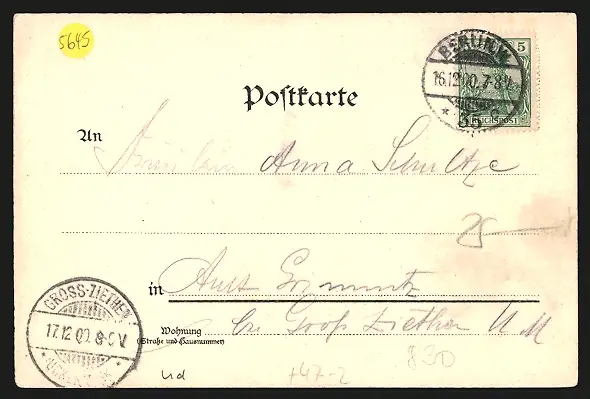 5645
BERLIN.W.
16.12.00.7-8V.
35
5
REICHSPOST
Postkarte
An
Fräulein Anna Schultze
25
in Amt Grimnitz
Wohnung
(Straße und Hausnummer)
bei Groß Ziethen U M
GROSS-ZIETHEN
17.12 00. 8-9V
830
+47-2